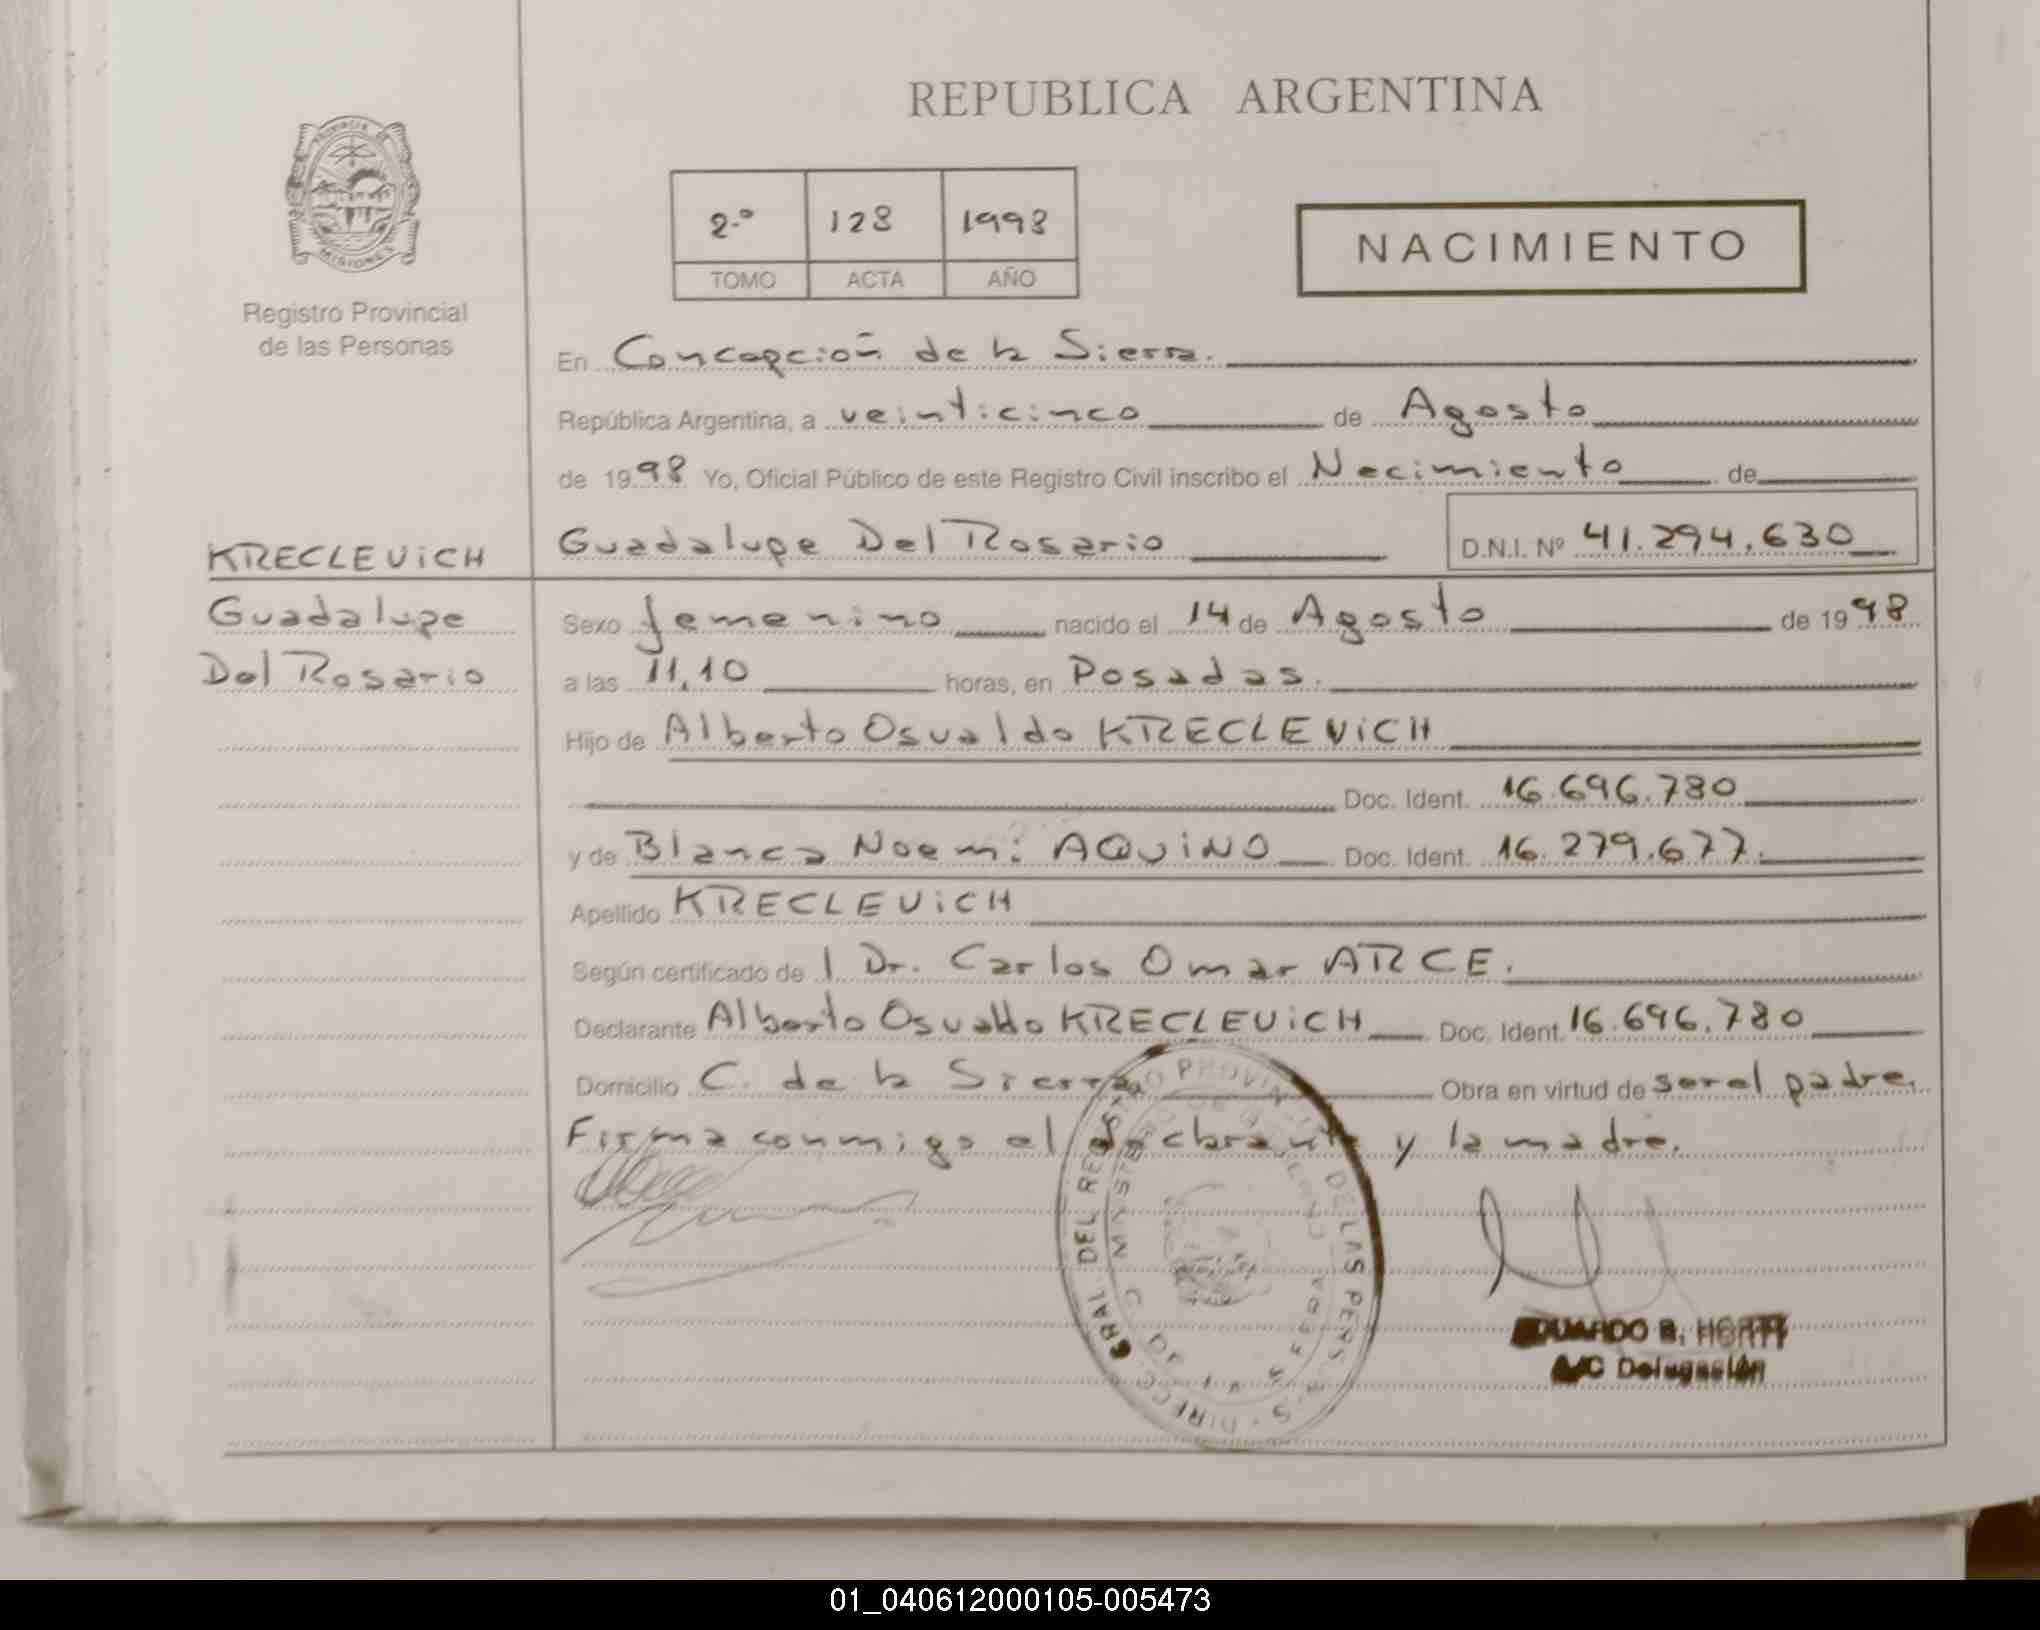 REPUBLICA ARGENTINA
PROVINCIA DE MISIONES
Registro Provincial
de las Personas
2.º 128 1998
TOMO ACTA AÑO
NACIMIENTO
En Concepción de la Sierra.
República Argentina, a veinticinco de Agosto
de 1998 Yo, Oficial Público de este Registro Civil inscribo el Nacimiento de
KRECLEVICH
Guadalupe Del Rosario D.N.I. Nº 41.294.630
Guadalupe
Del Rosario
Sexo femenino nacido el 14 de Agosto de 1998
a las 11,10 horas, en Posadas.
Hijo de Alberto Osvaldo KRECLEVICH
Doc. Ident. 16.696.780
y de Blanca Noemi AQUINO Doc. Ident. 16.279.677.
Apellido KRECLEVICH
Según certificado de l Dr. Carlos Omar ARCE.
Declarante Alberto Osvaldo KRECLEVICH Doc. Ident. 16.696.780
Domicilio C. de la Sierra Obra en virtud de ser el padre.
Firma conmigo el declarante y la madre.
DIRECC GRAL. DEL REGISTRO PROVINCIAL DE LAS PERSONAS
EDUARDO R.
A/C Delegación
01_040612000105-005473